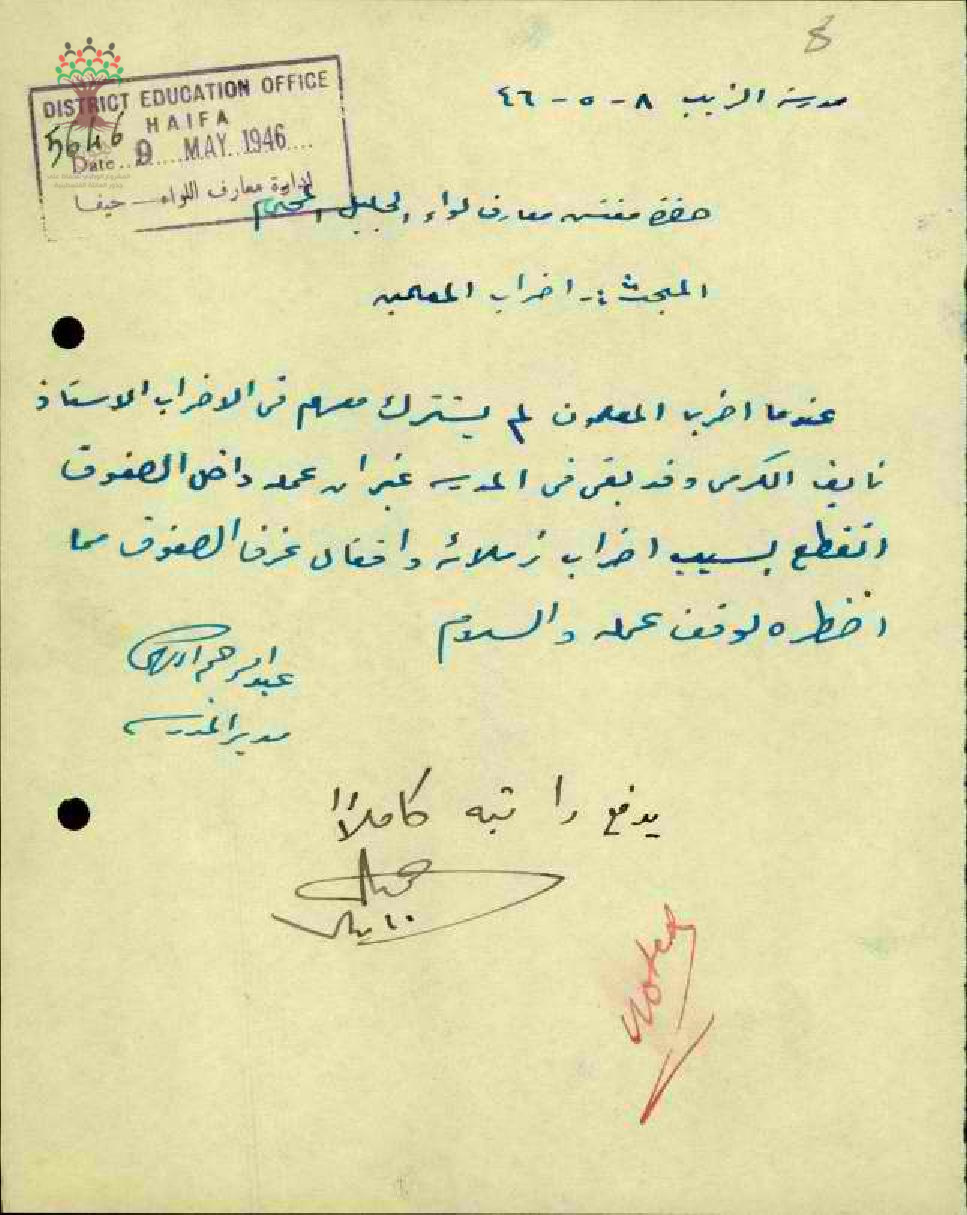 8
DISTRICT EDUCATION OFFICE
HAIFA
5646
Date 9 MAY 1946
لادارة معارف اللواء — حيفا
مدرسة الزيب ٨ - ٥ - ٤٦
حضرة مفتش معارف لواء الجليل المحترم
المبحث :- اضراب المعلمين
عندما اضرب المعلمون لم يشترك معهم في الاضراب الاستاذ
نايف الكرمي وقد بقي في المدرسه غير ان عمله داخل الصفوف
انقطع بسبب اضراب زملائه واقفال غرف الصفوف مما
اضطره لوقف عمله والسلام
عبد الرحمن
مدير المدرسه
يدفع راتبه كاملاً
١٠ مايو
Noted